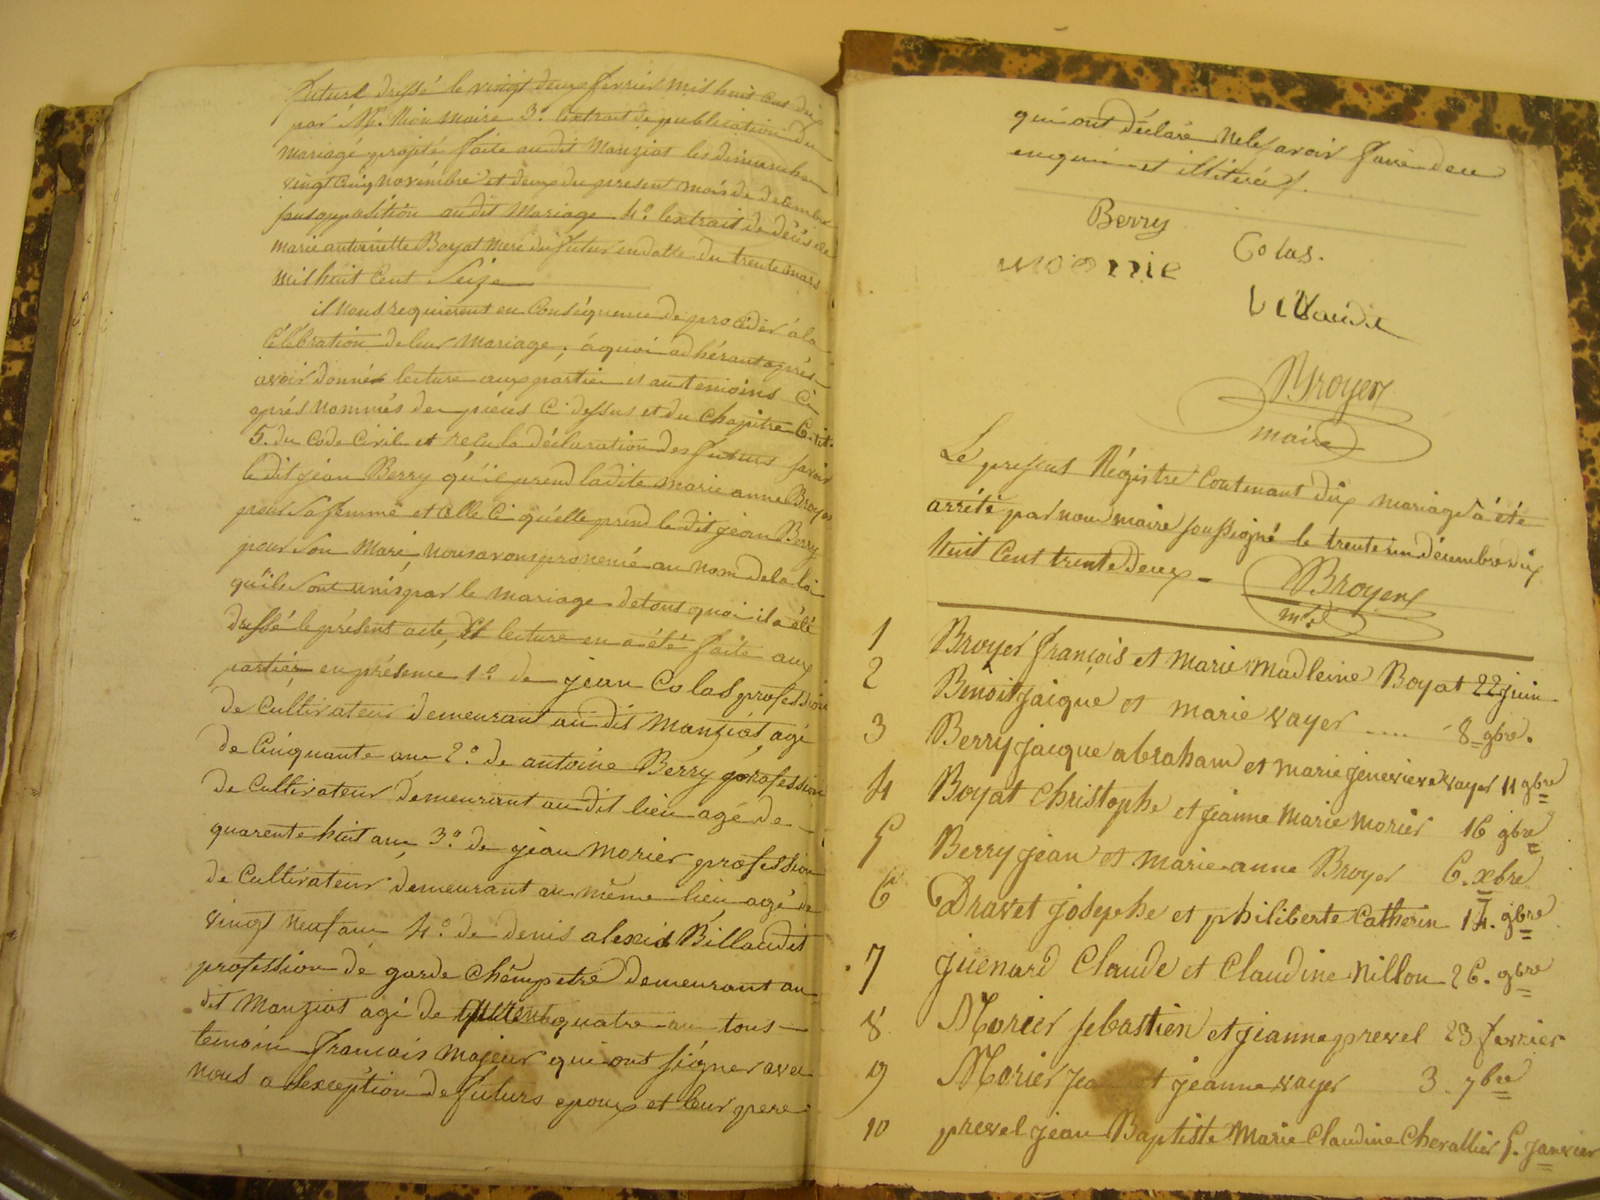 futur dressé le vingt deux fevrier mil huit cent dix
par Mr. Mion maire 3.o lextrait de publication du
mariage projeté faite audit Manziat les dimanches
vingt cinq novembre et deux du present mois de decembre
sans opposition audit mariage 4.o lextrait de décès de
marie antoinette Boyat mere du futur en datte du trente mars
mil huit cent Seize
il nous requierent en Conséquence de procéder à la
Célébration de leur mariage, à quoi adhérant après
avoir donné lecture aux parties et aux temoins ci
après nommés des pièces ci dessus et du chapitre 6. tit.
5. du Code Civil et reçu la déclaration des futurs savoir
le dit jean Berry qu'il prend ladite marie anne Broyer
pour sa femme et celle ci qu'elle prend le dit jean Berry
pour son mari, nous avons prononcé au nom de la loi
qu'ils sont unis par le mariage de tous quoi il a été
dressé le présent acte, Et lecture en a été faite aux
parties en présence 1.o de jean Colas profession
de Cultivateur demeurant au dit Manziat, agé
de Cinquante ans 2.o de antoine Berry profession
de Cultivateur demeurant au dit lieu agé de
quarente huit ans, 3.o de jean Morier profession
de Cultivateur demeurant au même lieu, agé de
vingt neuf ans 4.o de denis alexis Billaudit
profession de garde Chempetre demeurant au
dit Manziat agé de quatre ans tous
temoin francois majeur qui ont signer avec
nous a lexception de futurs epoux et leur pere
qui ont déclaré ne le savoir faire de ce
enquis et illiterés.
Berry
Colas.
Broyer
maire
Le present Régistre Contenant dix mariage à été
arrété par nous maire soussigné le trente un décembre dix
huit Cent trente deux
Broyer
1 Broyer françois et marie madleine Boyat 22 juin
2 Benoit jaique et marie vayer .... 8 gbre.
3 Berry jacque abraham et marie jenevieve vayer 11 gbre
4 Boyat Christophe et jeanne Marie morier 16 gbre
5 Berry jean et marie anne Broyer 6. xbre
6 Dravet josephe et philiberte Catherin 14. gbre
7 guenard Claude et Claudine Nillon 26. gbre
8 Morier sebastien et jeanne prevel 23 fevrier
9 Morier et jeanne vayer 3. 7bre
10 prevel jean Baptiste Marie Claudine Chevallier 5. janvier